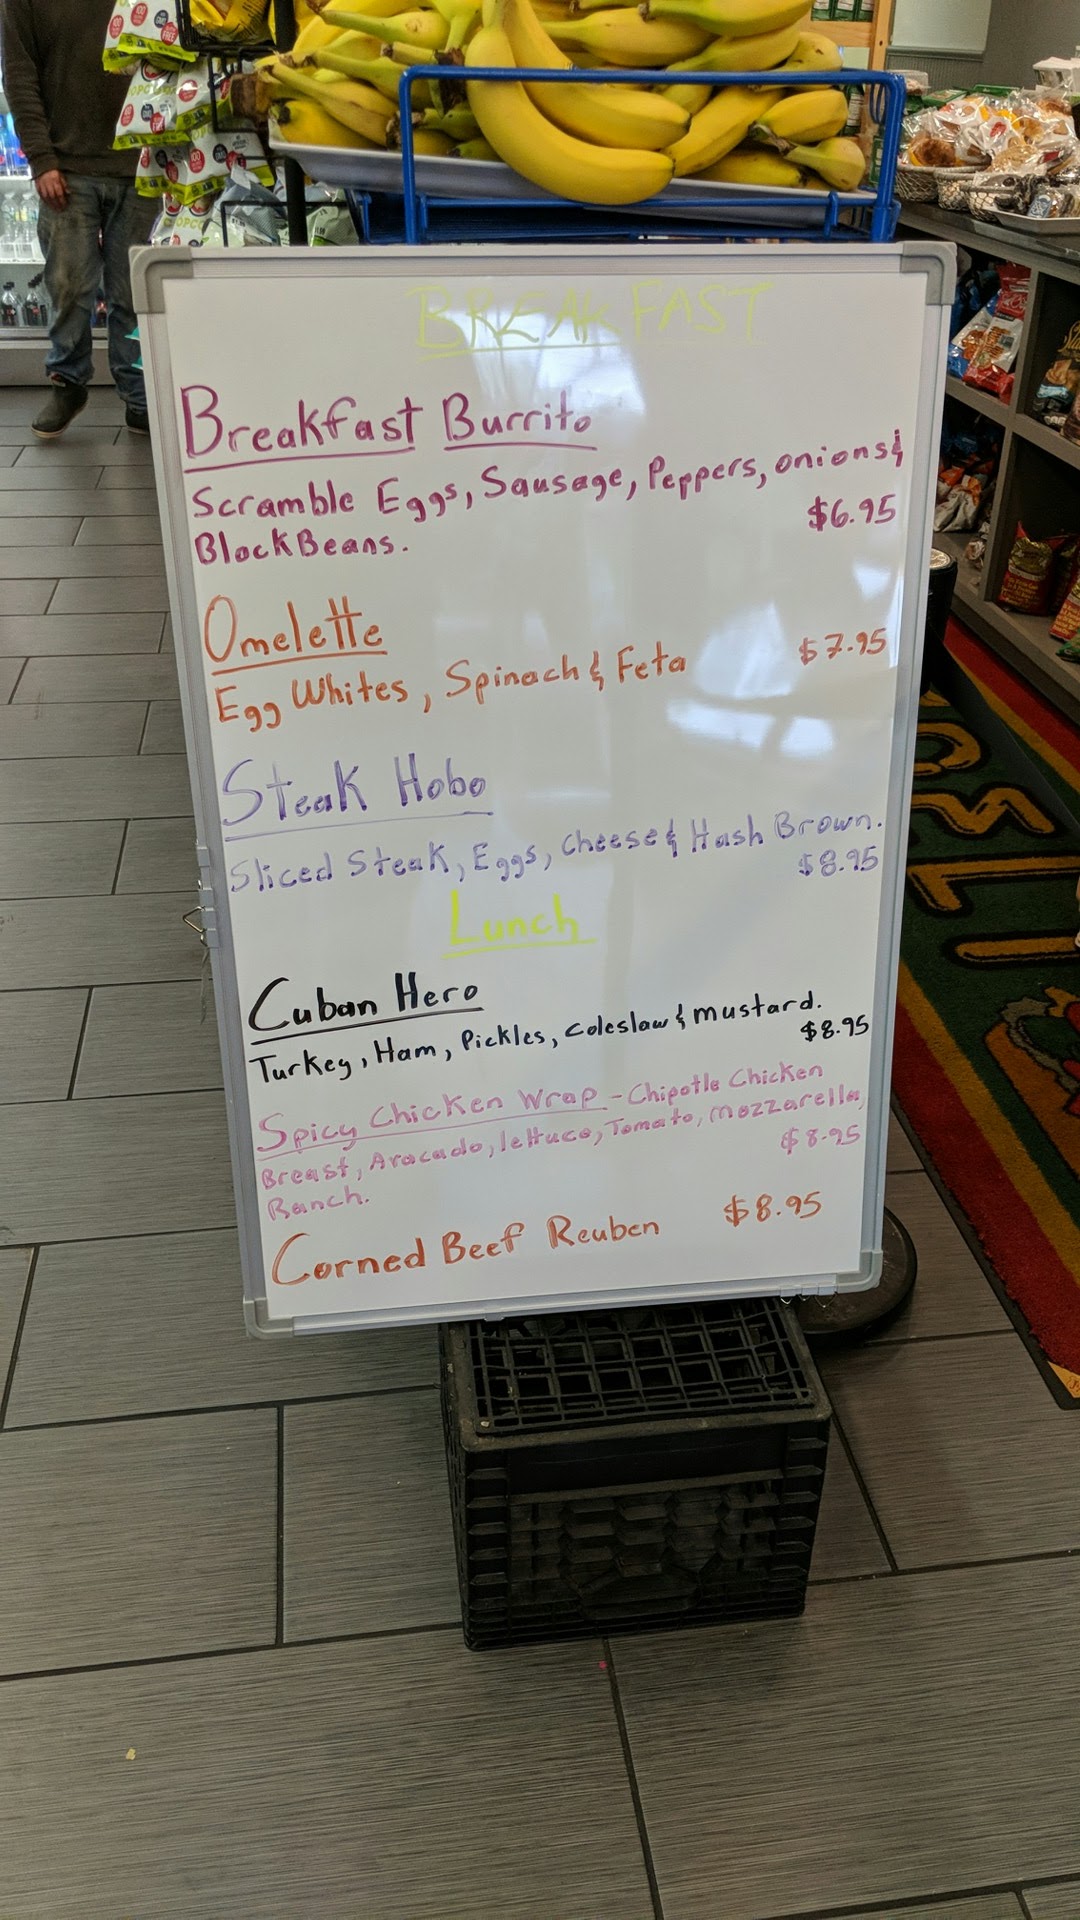 BREAKFAST
Breakfast Burrito
Scramble Eggs, Sausage, Peppers, onions &
BlackBeans.
$6.95
Omelette
Egg Whites, Spinach & Feta
$7.95
Steak Hobo
Sliced Steak, Eggs, Cheese & Hash Brown.
$8.95
Lunch
Cuban Hero
Turkey, Ham, Pickles, coleslaw & mustard.
$8.95
Spicy Chicken Wrap - Chipotle Chicken
Breast, Avacado, lettuce, Tomato, mozzarella,
Ranch.
$8.95
Corned Beef Reuben $8.95